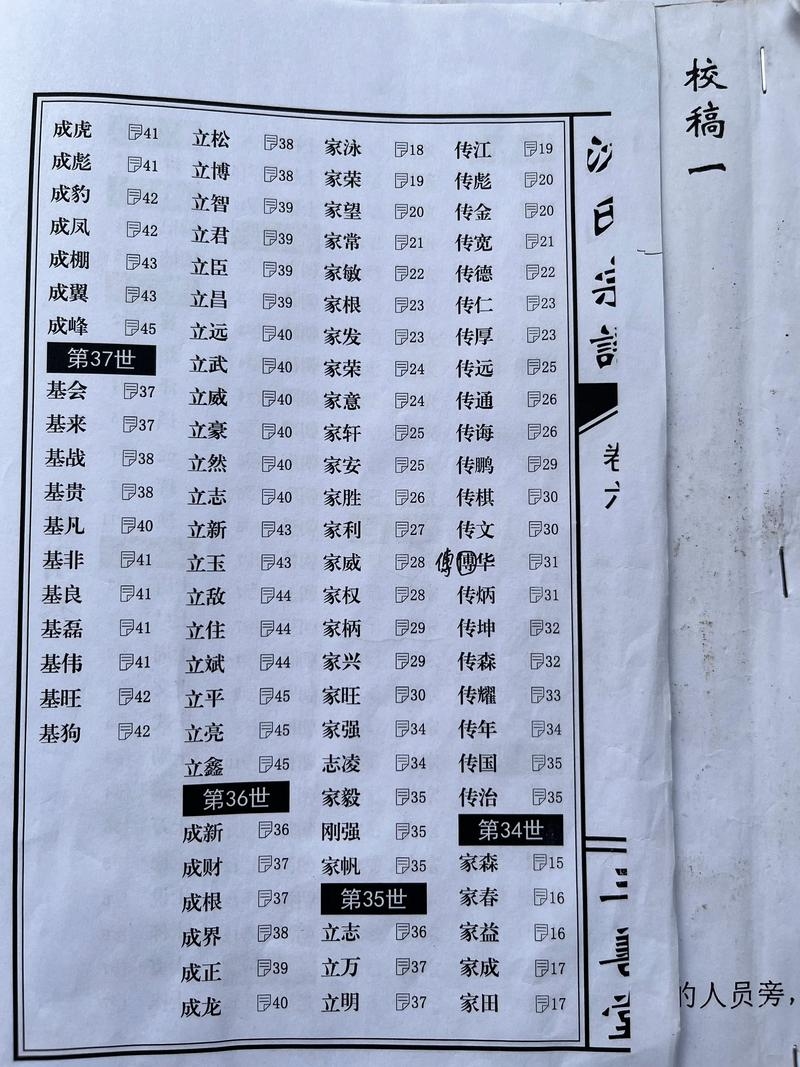 校稿一
氏宗譜
卷六
三善堂
的人员旁，
传江 19
传彪 20
传金 20
传宽 21
传德 22
传仁 23
传厚 23
传远 25
传通 26
传海 26
传鹏 29
传棋 30
传文 30
傅博华 31
传炳 31
传坤 32
传森 32
传耀 33
传年 34
传国 35
传治 35
第34世
家森 15
家春 16
家益 16
家成 17
家田 17
家泳 18
家荣 19
家望 20
家常 21
家敏 22
家根 23
家发 23
家荣 24
家意 24
家轩 25
家安 25
家胜 26
家利 27
家威 28
家权 28
家柄 29
家兴 29
家旺 30
家强 34
志凌 34
家毅 35
刚强 35
家帆 35
第35世
立志 36
立万 37
立明 37
立松 38
立博 38
立智 39
立君 39
立臣 39
立昌 39
立远 40
立武 40
立威 40
立豪 40
立然 40
立志 40
立新 43
立玉 43
立敌 44
立住 44
立斌 44
立平 45
立亮 45
立鑫 45
第36世
成新 36
成财 37
成根 37
成界 38
成正 39
成龙 40
成虎 41
成彪 41
成豹 42
成凤 42
成棚 43
成翼 43
成峰 45
第37世
基会 37
基来 37
基战 38
基贵 38
基凡 40
基非 41
基良 41
基磊 41
基伟 41
基旺 42
基狗 42